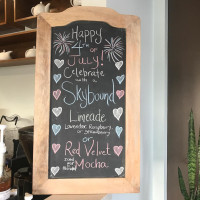 Happy
4th of
July!
Celebrate
with a
Skybound
Limeade
Lavender Raspberry
or Strawberry
or
Red Velvet
Iced
Mocha